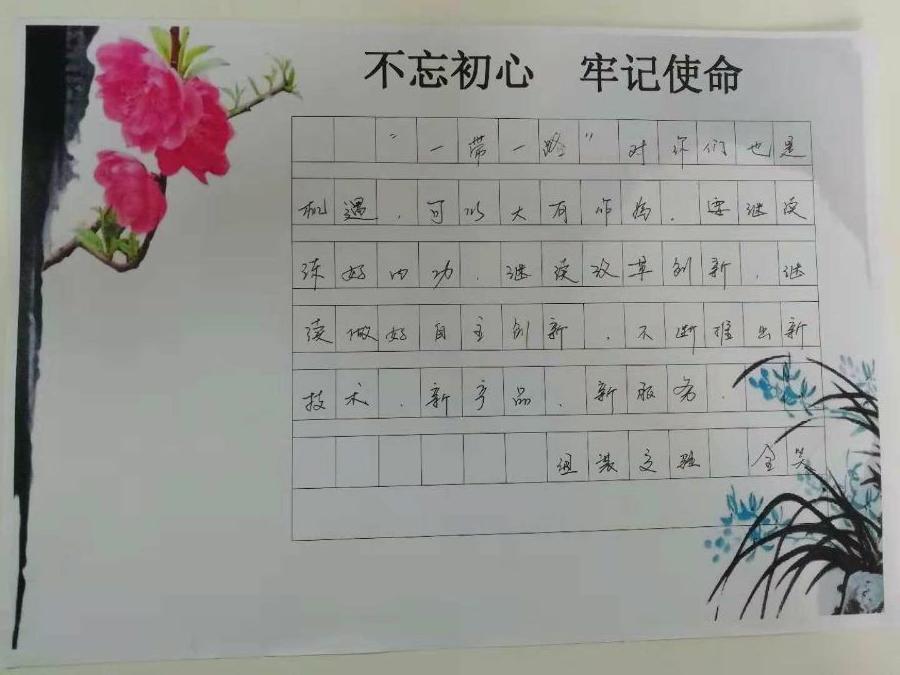 不忘初心 牢记使命
“一带一路”对你们也是
机遇，可以大有作为，要继续
练好内功，继续改革创新，继
续做好自主创新，不断推出新
技术、新产品、新服务。
组装交验 金笑